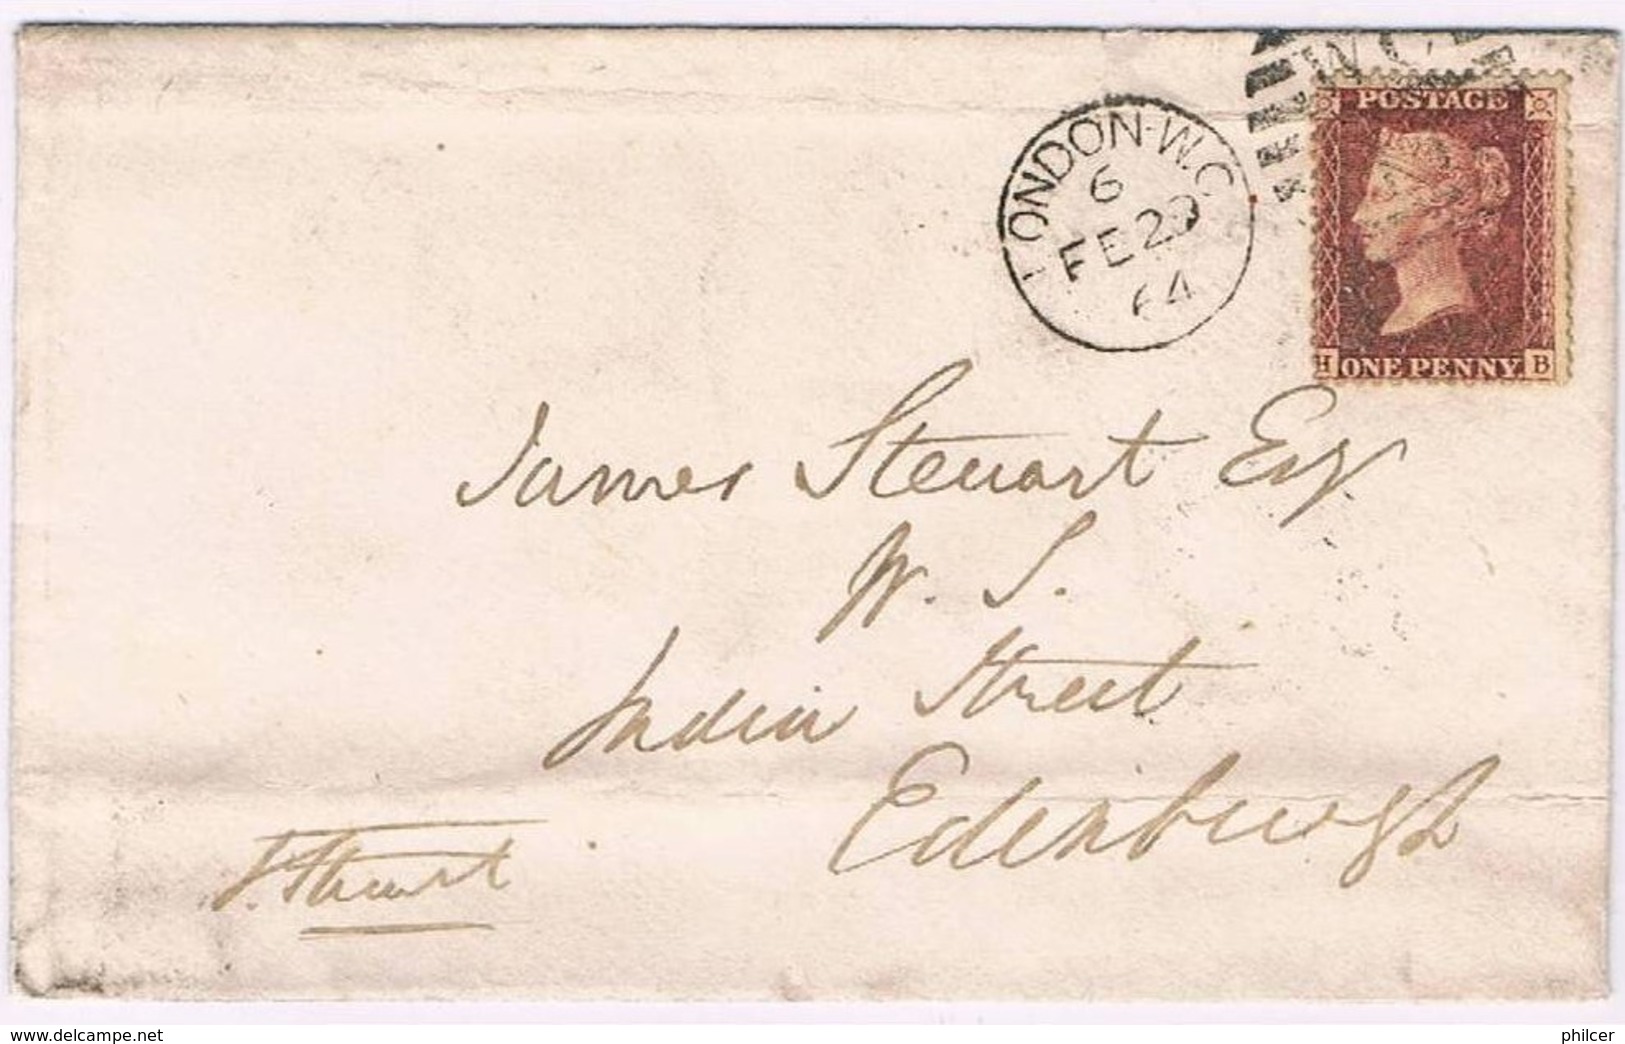 W.C.
POSTAGE
LONDON·W.C
6
FE 29
64
H ONE PENNY B
James Steuart Esq.
W. S.
India Street
Edinburgh
delcampe.net
philcer